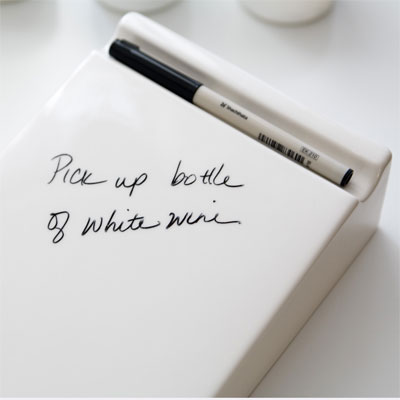 Pick up bottle
of white wine